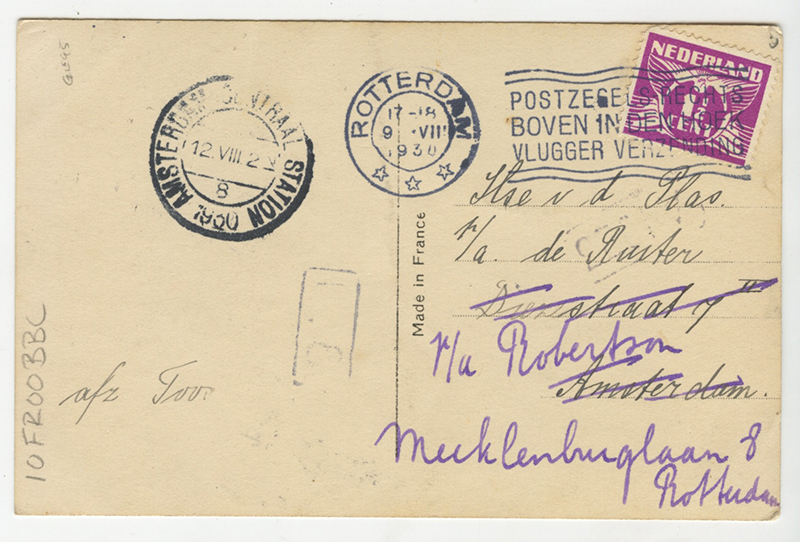 GL95
AMSTERDAM CENTRAAL STATION 1930
12.VIII 2
8
ROTTERDAM
17-18
9 VIII
1930
POSTZEGELS RECHTS
BOVEN IN DEN HOEK
VLUGGER VERZENDING
NEDERLAND
1½
CENT
Made in France
Ilse v d Plas.
p/a. de Ruiter
straat 7 III
p/a Robertson
Amsterdam.
Mecklenburglaan 8
Rotterdam
afz Toor
10FR00BBC